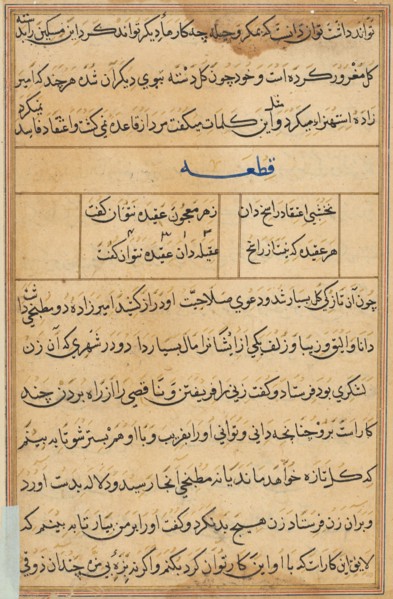 تواند داشت توان دانست که بمکر و حیله چه کارها دیگر تواند کرد این مسکین را بدسته
کل مغرور کرده است و خود چون کل دسته بوی دیگران شده هرچند که امیر
زاده استهزاء میکرد و این کلمات میکفت مرد از قاعده نمی کشت و اعتقاد فاسد نمیکرد
قطعه
نخشبی اعتقاد راسخ دان
زهر معجون عقیده نتوان کفت
هر عقیده که نیست از راسخ
عقیله دان عقیده نتوان کفت
چون آن تازکی کل بسیار شد و دعوی صلاحیت او دراز کشید امیرزاده دو مطبخی داشت
دانا و لایق و زیبا و زلف یکی از ایشانرا مال بسیار داد و در شهری که آن زن
لشکری بود فرستاد و کفت زنی را فریفتن و ناقصی را از راه بردن چند
کار است برو چنانچه دانی و توانی او را بفریب و با او هم بستر شو تا به بینم
که کل تازه خواهد ماند یا نه مطبخی انجا رسید و دلاله بدست اورد
و بران زن فرستاد زن هیچ بد نکرد و کفت او را بر من بیار تا به بینم که
لایق این کار است که با او این کار توان کرد بکنم و اکرنه نزد بی من چندان ذوقی